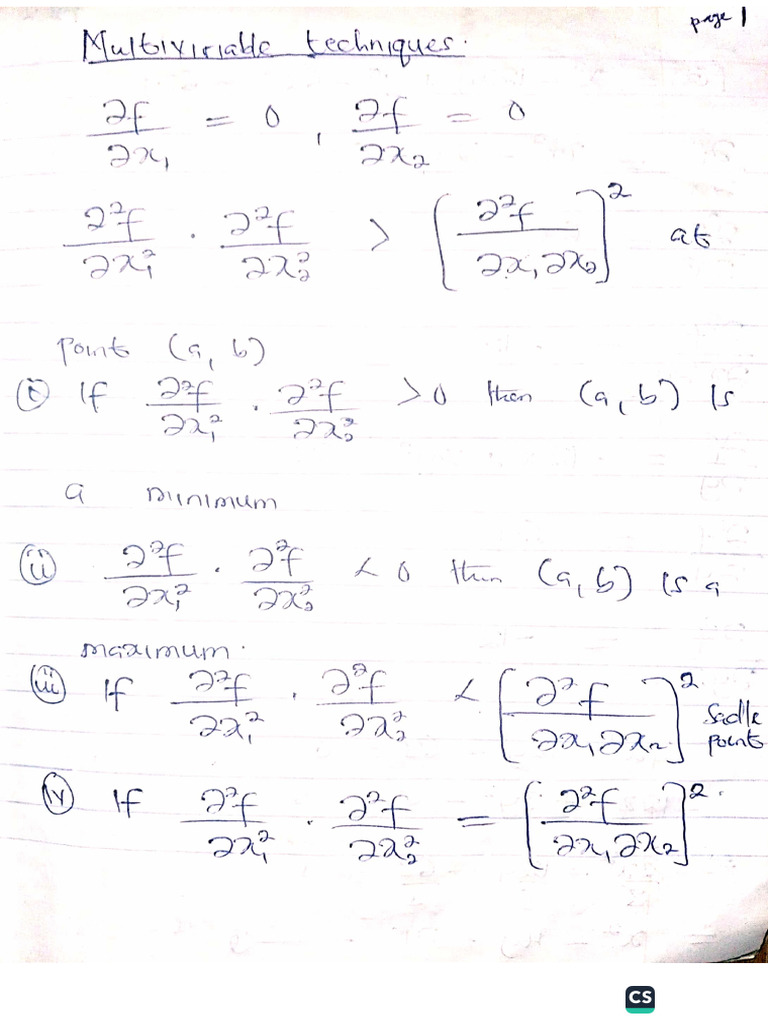 page 1
Multiviriable techniques.
∂f/∂x₁ = 0 , ∂f/∂x₂ = 0
∂²f/∂x₁² · ∂²f/∂x₂² > [∂²f/∂x₁∂x₂]² at
point (a, b)
(i) If ∂²f/∂x₁² · ∂²f/∂x₂² > 0 then (a, b) is
a minimum
(ii) ∂²f/∂x₁² · ∂²f/∂x₂² < 0 then (a, b) is a
maximum.
(iii) If ∂²f/∂x₁² · ∂²f/∂x₂² < [∂²f/∂x₁∂x₂]² Sadle point
(iv) If ∂²f/∂x₁² · ∂²f/∂x₂² = [∂²f/∂x₁∂x₂]².
CS